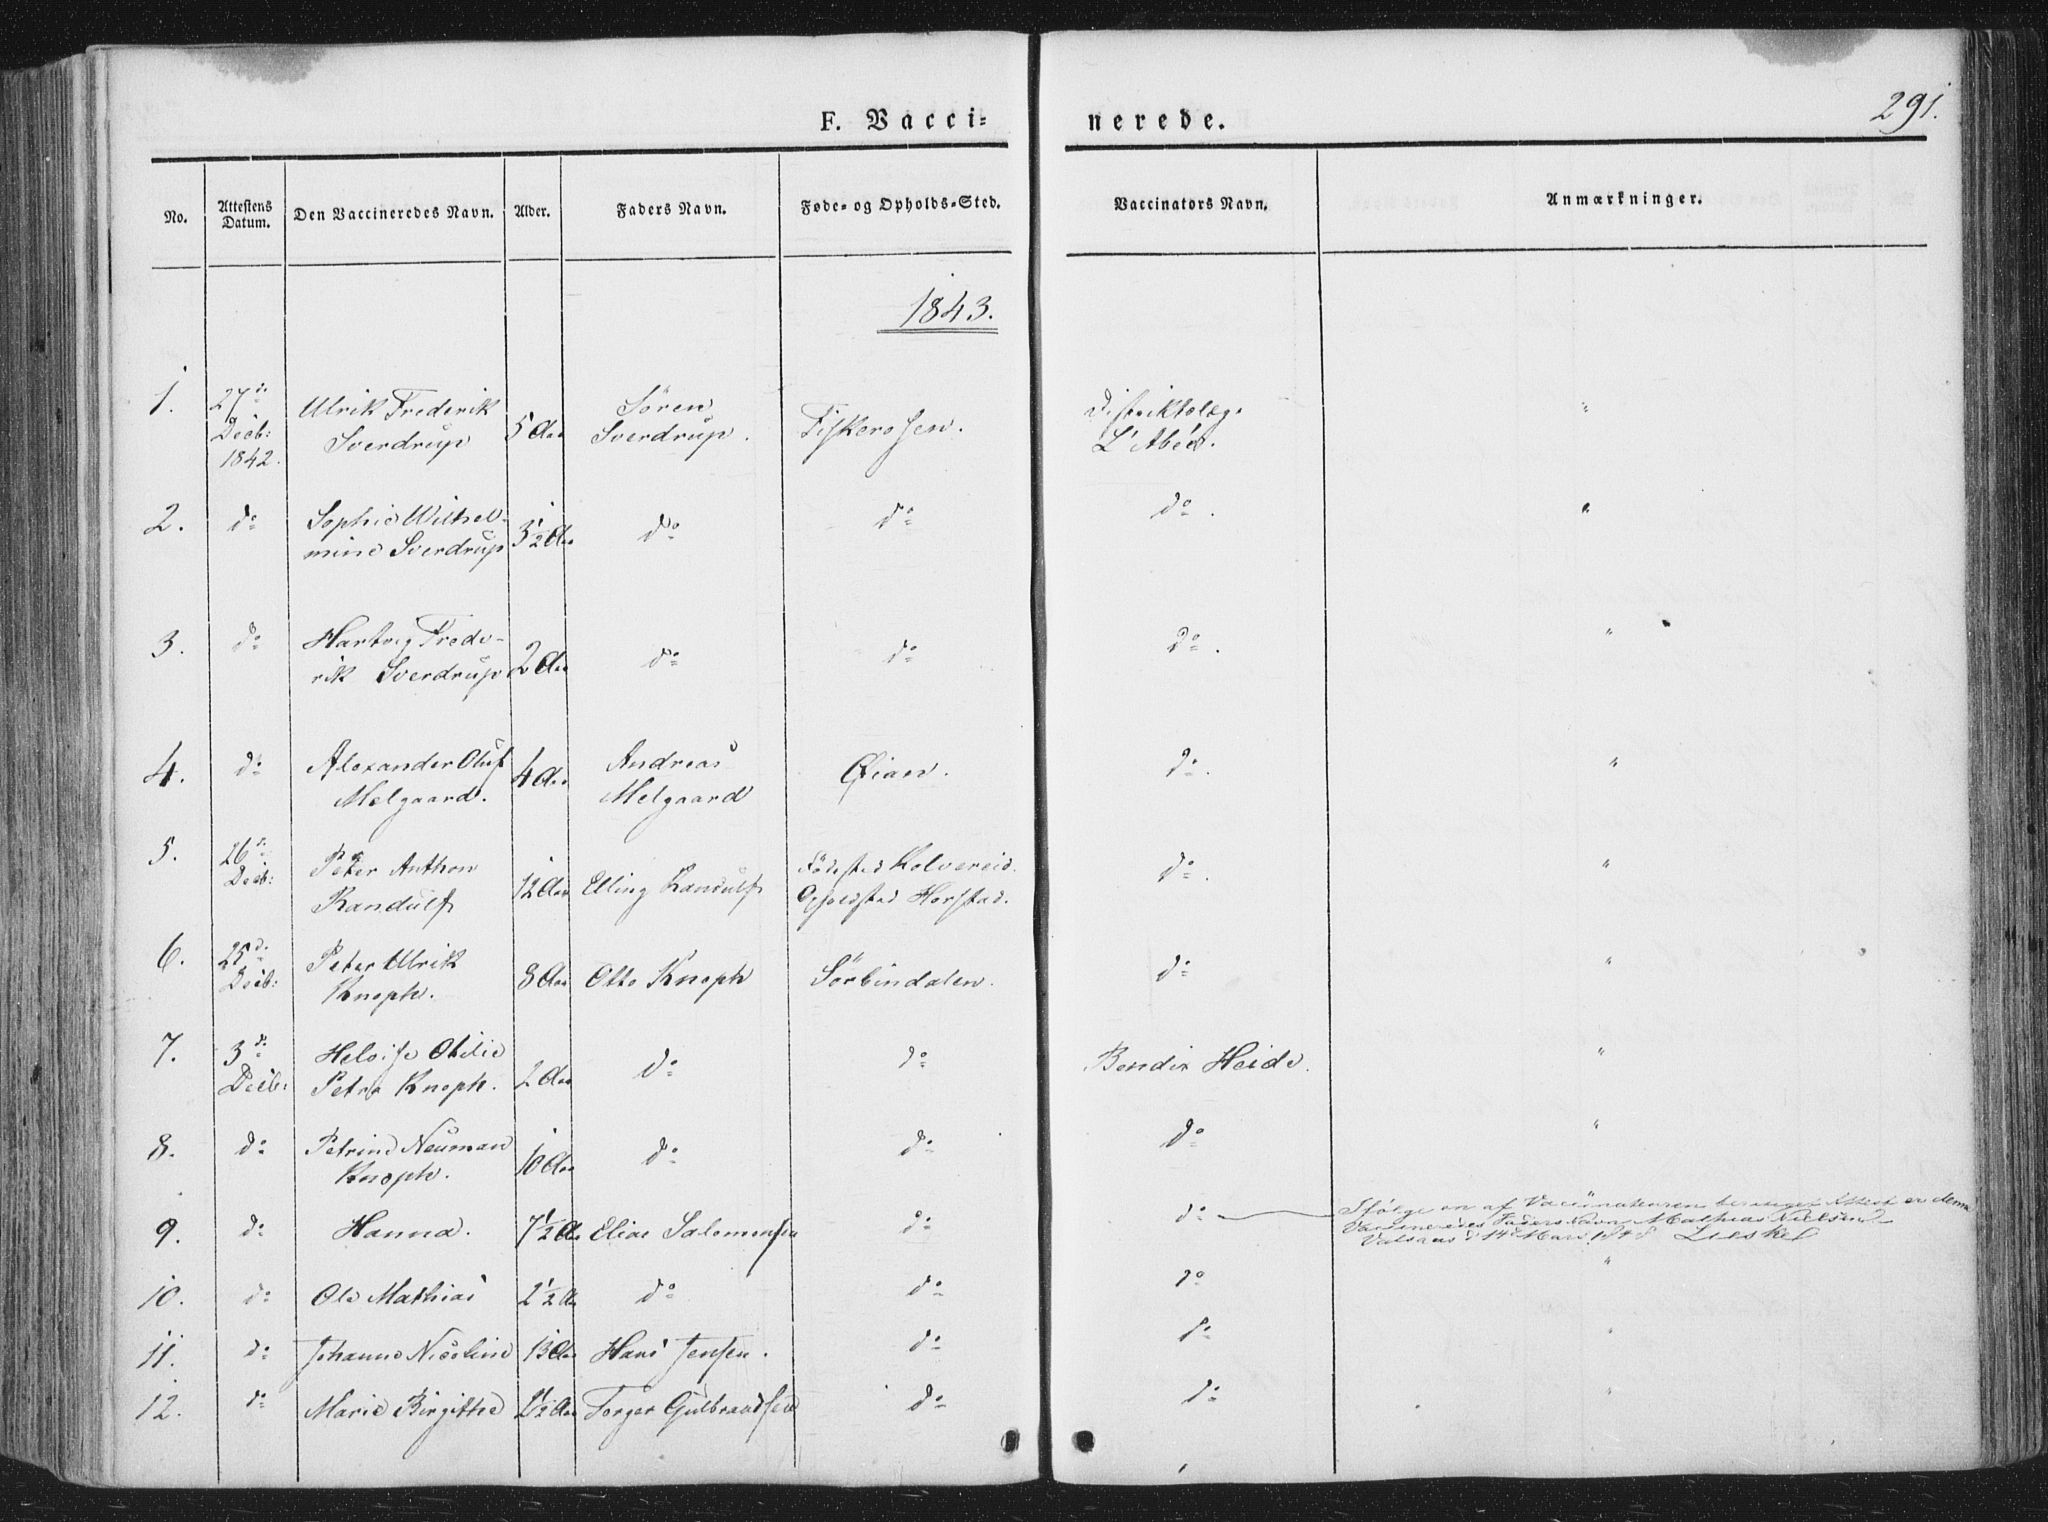 291.
F. Vacci=nerede.
No. Attestens Datum. Den Vaccineredes Navn. Alder. Faders Navn. Føde= og Opholds=Sted. Vaccinators Navn. Anmærkninger.
1843.
1. 27de Decb: 1842. Ulrik Frederik Sverdrup 5 Aar Sören Sverdrup. Distriktslæge L'Abée. "
2. do Sophie Wilhelmine Sverdrup 3½ Aar do do do. "
3. do Hartvig Frederik Sverdrup 2 Aar do do do. "
4. do Alexander Oluf Melgaard. 4 Aar Andreas Melgaard Öian. do. "
5. 26de Decb: Peter Anthon Randulf 12 Aar Elling Randulf Födested Kolvereid. Opholdsted Horstad. do. "
6. 25de Decb: Peter Ulrik Knoph. 8 Aar Otto Knoph Sörbindalen. do "
7. 3de Decb: Heloise Otilie Petra Knoph. 2 Aar do do Bendix Heide. "
8. do Petrine Neuman Knoph. 10 Aar do do do "
9. do Hanna. 7½ A Elias Salomonsen do do Ifølge en af Vaccinateuren Attest er denne
Vaccineredes Faders Navn Mathias Nielsen
14de Marts
10. do Ole Mathias 2½ A do do do "
11. do Johanne Nicoline 13 Aar Hans Jensen. do do "
12. do Marie Birgitthe Aar Torger Gulbrandsen do do "